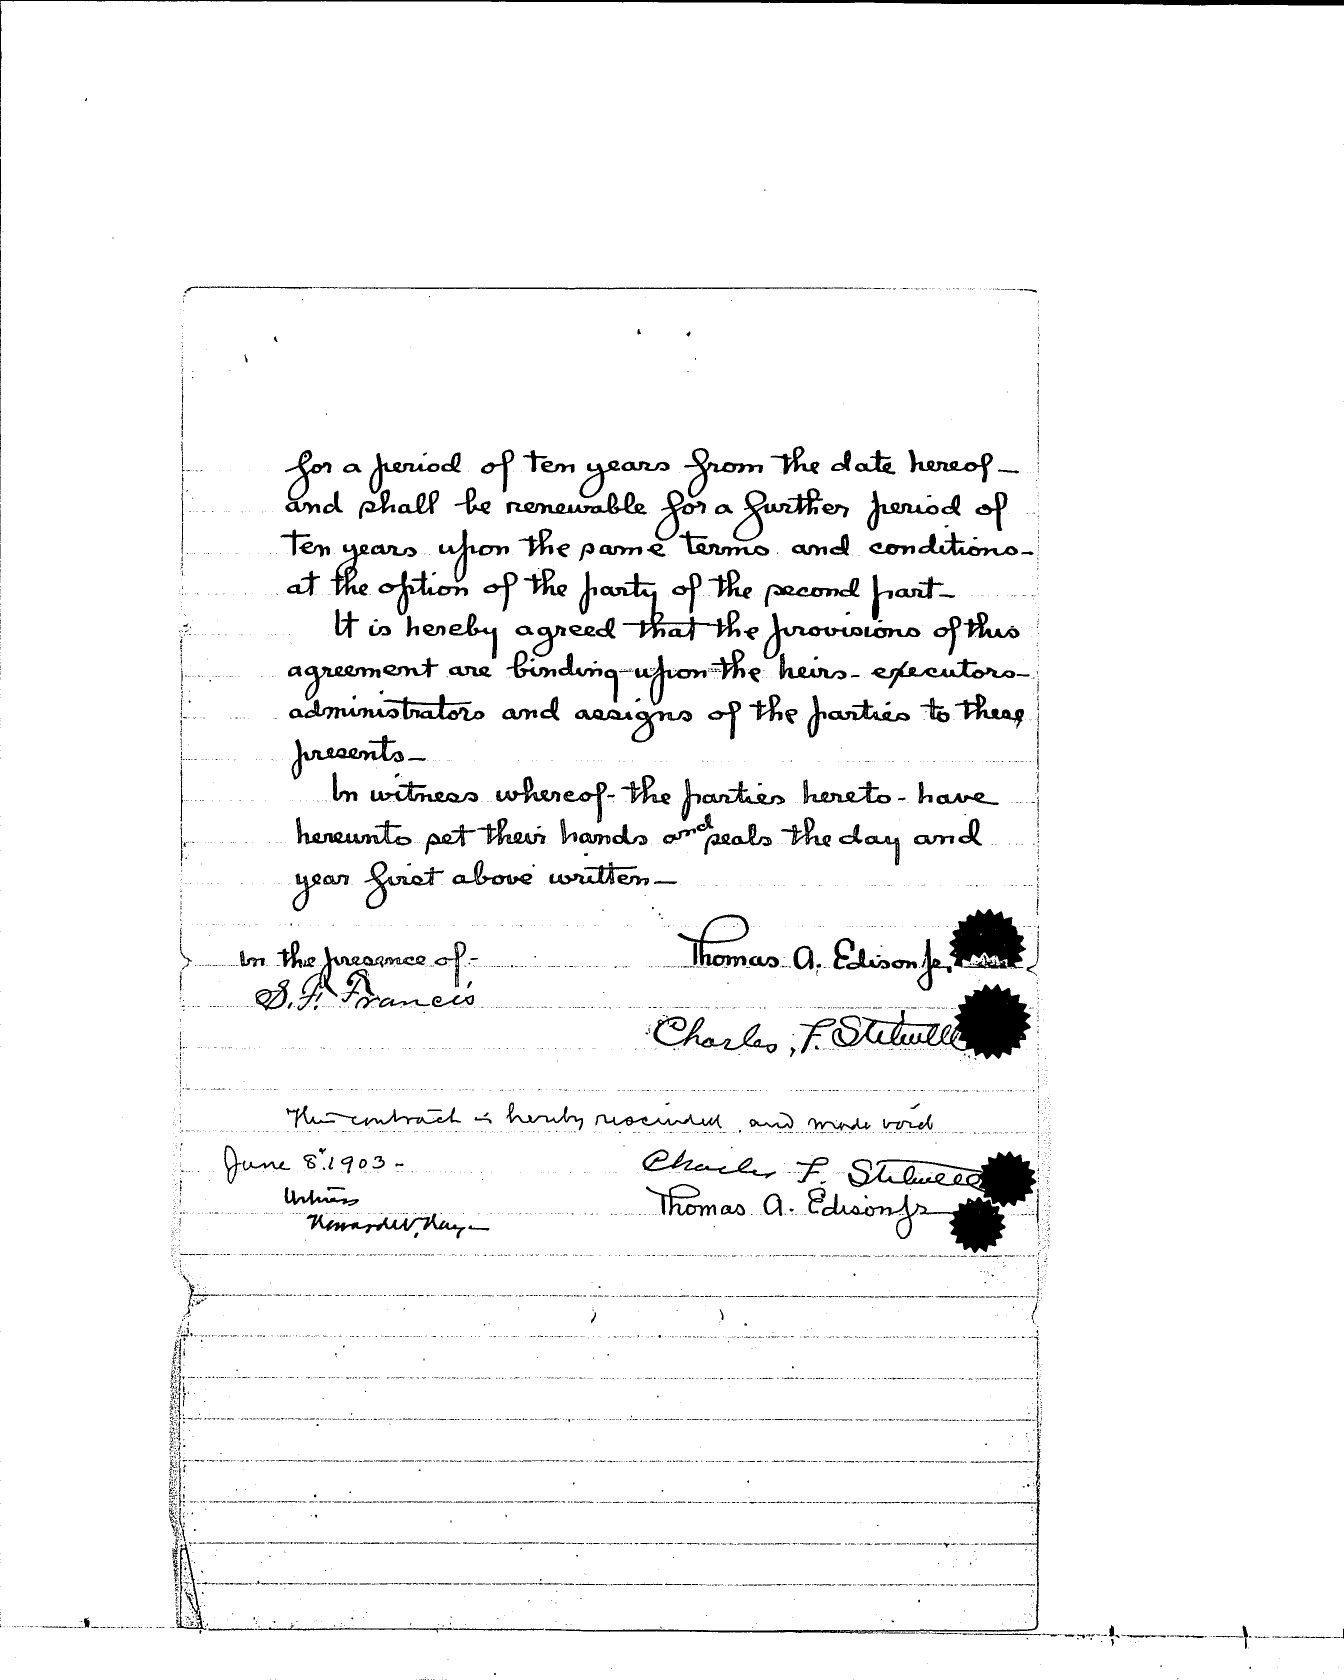 for a period of ten years from the date hereof—
and shall be renewable for a further period of
ten years upon the same terms and conditions—
at the option of the party of the second part—
It is hereby agreed that the provisions of this
agreement are binding upon the heirs- executors-
administrators and assigns of the parties to these
presents—
In witness whereof- the parties hereto- have
hereunto set their hands and seals the day and
year first above written—
In the presence of-
Thomas A. Edison Jr.
S. F. Francis
Charles, F. Stilwell
This contract is hereby rescinded and made void
June 8" 1903-
Charles F. Stilwell
Witness
Thomas A. Edison Jr